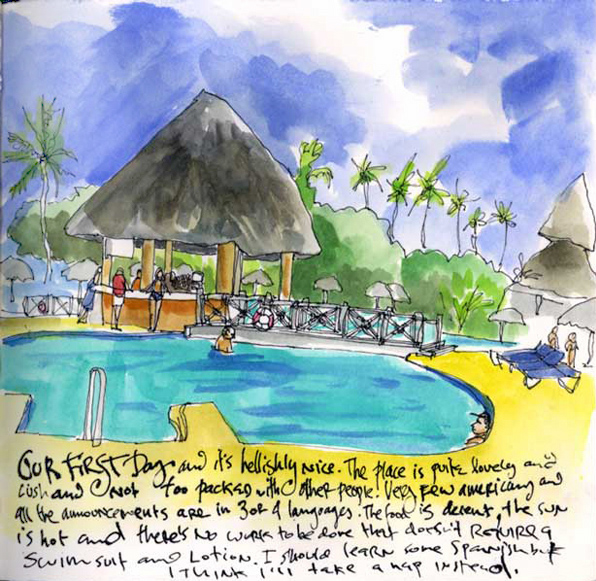 OUR FIRST Day and it's hellishly nice. The place is quite lovely and
lush and not too packed with other people. Very few americans and
all the announcements are in 3 or 4 languages. The food is decent, the sun
is hot and there's no work to be done that doesn't REQUIRE a
Swimsuit and Lotion. I should learn some Spanish but
I think I'll take a nap instead.